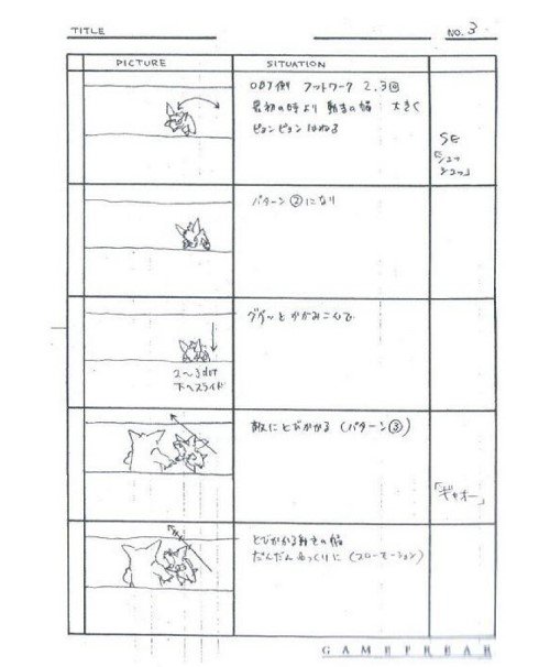 TITLE
NO. 3
PICTURE
SITUATION
OBJ側 フットワーク 2,3回
最初の時より 動きの幅 大きく
ピョンピョン はねる
SE
「シュッ
シュッ」
パターン②になり
グイッと かがみこんで
2〜3dot
下へスライド
敵にとびかかる (パターン③)
「ギャオー」
とびかかる動きの幅
だんだんゆっくりに (スローモーション)
GAME FREAK